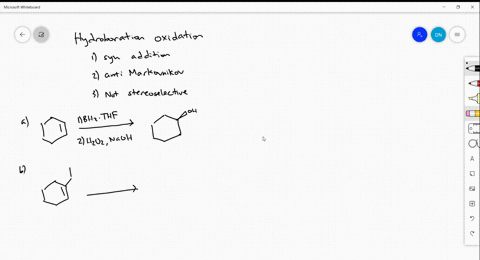 Microsoft Whiteboard
DN
Hydroboration oxidation
1) syn addition
2) anti Markovnikov
3) Not stereoselective
a) 1) BH3·THF OH
2) H2O2, NaOH
b)